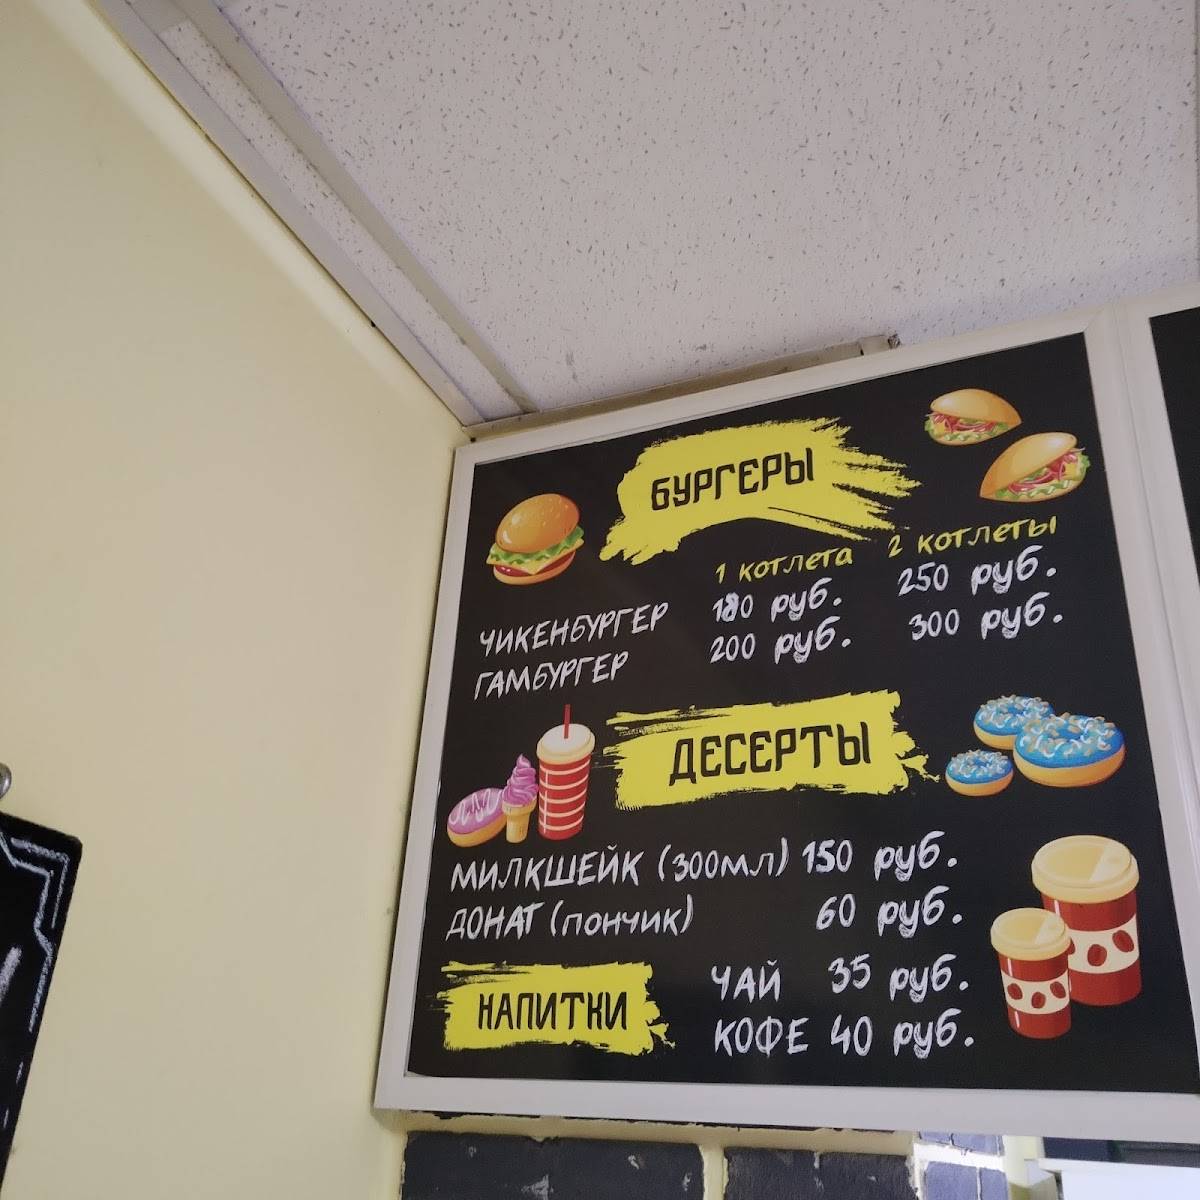 БУРГЕРЫ
1 котлета 2 котлеты
ЧИКЕНБУРГЕР 180 руб. 250 руб.
ГАМБУРГЕР 200 руб. 300 руб.
ДЕСЕРТЫ
МИЛКШЕЙК (300мл) 150 руб.
ДОНАТ (пончик) 60 руб.
НАПИТКИ
ЧАЙ 35 руб.
КОФЕ 40 руб.